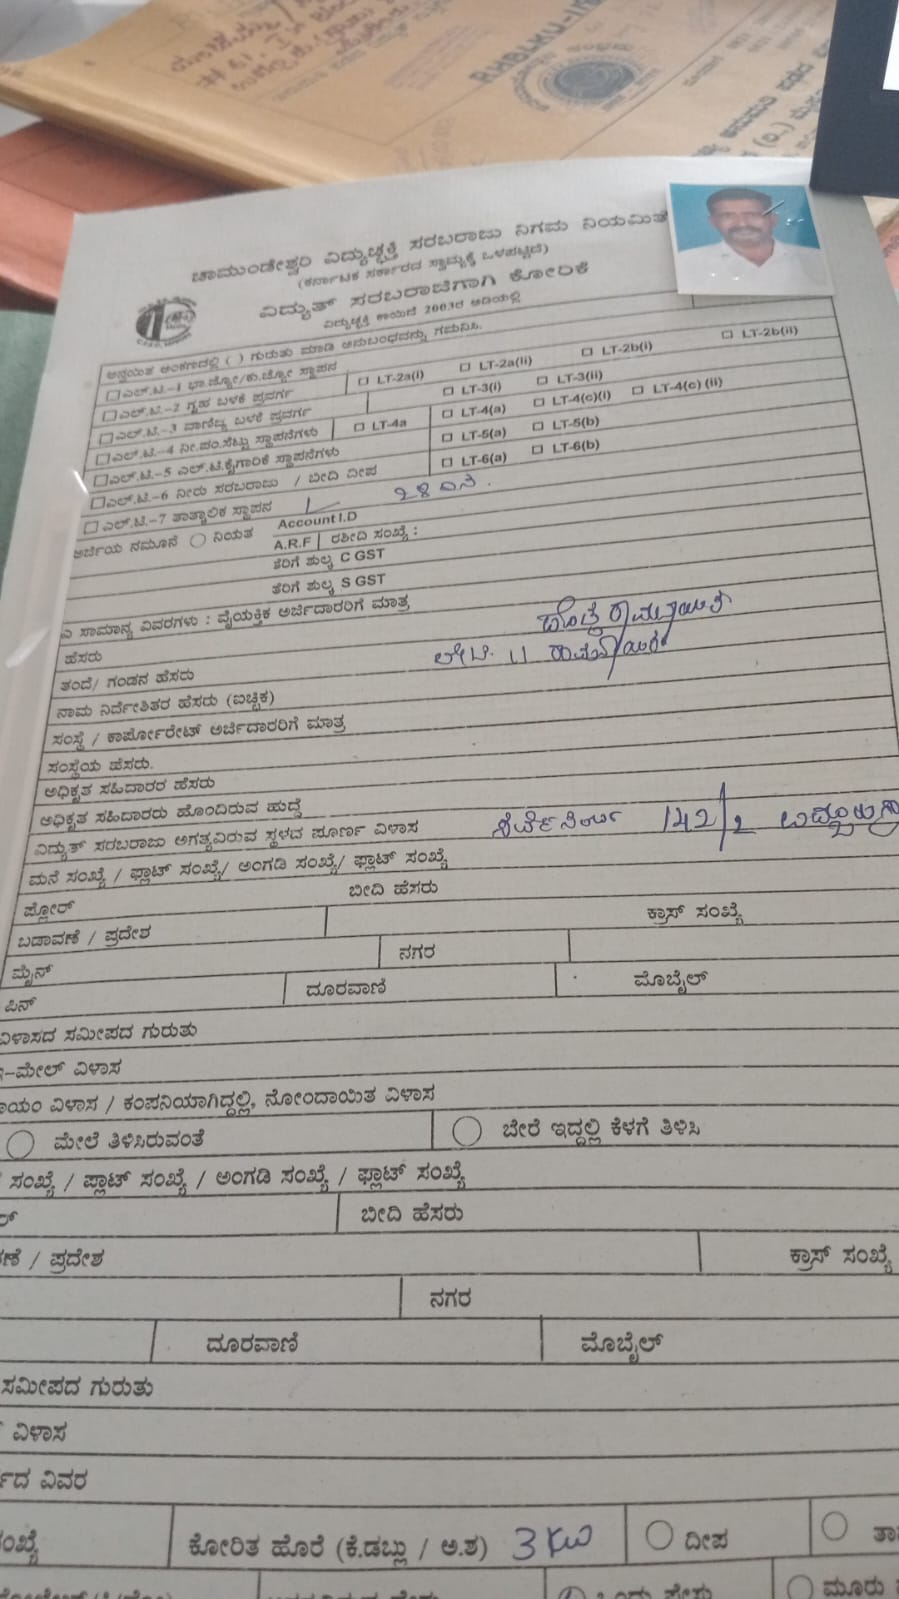 ಚಾಮುಂಡೇಶ್ವರಿ ವಿದ್ಯುಚ್ಛಕ್ತಿ ಸರಬರಾಜು ನಿಗಮ ನಿಯಮಿತ
(ಕರ್ನಾಟಕ ಸರ್ಕಾರದ ಸ್ವಾಮ್ಯಕ್ಕೆ ಒಳಪಟ್ಟಿದೆ)
ವಿದ್ಯುತ್ ಸರಬರಾಜಿಗಾಗಿ ಕೋರಿಕೆ
ವಿದ್ಯುಚ್ಛಕ್ತಿ ಕಾಯಿದೆ 2003ರ ಅಡಿಯಲ್ಲಿ
ಅನ್ವಯಿತ ಅಂಕಣದಲ್ಲಿ ( ) ಗುರುತು ಮಾಡಿ ಅನುಬಂಧವನ್ನು ಗಮನಿಸಿ.
ಎಲ್.ಟಿ.-1 ಭಾ.ಜ್ಯೋ/ಕು.ಜ್ಯೋ ಸ್ಥಾಪನ
ಎಲ್.ಟಿ.-2 ಗೃಹ ಬಳಕೆ ಪ್ರವರ್ಗ LT-2a(i) LT-2a(ii) LT-2b(i) LT-2b(ii)
ಎಲ್.ಟಿ.-3 ವಾಣಿಜ್ಯ ಬಳಕೆ ಪ್ರವರ್ಗ LT-3(i) LT-3(ii)
ಎಲ್.ಟಿ.-4 ನೀ.ಪಂ.ಸೆಟ್ಟು ಸ್ಥಾಪನೆಗಳು LT-4a LT-4(a) LT-4(c)(i) LT-4(c) (ii)
ಎಲ್.ಟಿ.-5 ಎಲ್.ಟಿ.ಕೈಗಾರಿಕೆ ಸ್ಥಾಪನೆಗಳು LT-5(a) LT-5(b)
ಎಲ್.ಟಿ.-6 ನೀರು ಸರಬರಾಜು / ಬೀದಿ ದೀಪ LT-6(a) LT-6(b)
ಎಲ್.ಟಿ.-7 ತಾತ್ಕಾಲಿಕ ಸ್ಥಾಪನ
ಅರ್ಜಿಯ ನಮೂನೆ ನಿಯತ Account I.D
A.R.F ರಶೀದಿ ಸಂಖ್ಯೆ :
ತೆರಿಗೆ ಶುಲ್ಕ C GST
ತೆರಿಗೆ ಶುಲ್ಕ S GST
ಎ ಸಾಮಾನ್ಯ ವಿವರಗಳು : ವೈಯಕ್ತಿಕ ಅರ್ಜಿದಾರರಿಗೆ ಮಾತ್ರ
ಹೆಸರು
ತಂದೆ/ ಗಂಡನ ಹೆಸರು
ನಾಮ ನಿರ್ದೇಶಿತರ ಹೆಸರು (ಐಚ್ಛಿಕ)
ಸಂಸ್ಥೆ / ಕಾರ್ಪೋರೇಟ್ ಅರ್ಜಿದಾರರಿಗೆ ಮಾತ್ರ
ಸಂಸ್ಥೆಯ ಹೆಸರು.
ಅಧಿಕೃತ ಸಹಿದಾರರ ಹೆಸರು
ಅಧಿಕೃತ ಸಹಿದಾರರು ಹೊಂದಿರುವ ಹುದ್ದೆ
ವಿದ್ಯುತ್ ಸರಬರಾಜು ಅಗತ್ಯವಿರುವ ಸ್ಥಳದ ಪೂರ್ಣ ವಿಳಾಸ 142/2
ಮನೆ ಸಂಖ್ಯೆ / ಫ್ಲಾಟ್ ಸಂಖ್ಯೆ/ ಅಂಗಡಿ ಸಂಖ್ಯೆ/ ಫ್ಲಾಟ್ ಸಂಖ್ಯೆ
ಫ್ಲೋರ್ ಬೀದಿ ಹೆಸರು
ಬಡಾವಣೆ / ಪ್ರದೇಶ ಕ್ರಾಸ್ ಸಂಖ್ಯೆ
ಮೈನ್ ನಗರ
ಪಿನ್ ದೂರವಾಣಿ ಮೊಬೈಲ್
ವಿಳಾಸದ ಸಮೀಪದ ಗುರುತು
ಇ-ಮೇಲ್ ವಿಳಾಸ
ಾಯಂ ವಿಳಾಸ / ಕಂಪನಿಯಾಗಿದ್ದಲ್ಲಿ, ನೋಂದಾಯಿತ ವಿಳಾಸ
ಮೇಲೆ ತಿಳಿಸಿರುವಂತೆ ಬೇರೆ ಇದ್ದಲ್ಲಿ ಕೆಳಗೆ ತಿಳಿಸಿ
ಸಂಖ್ಯೆ / ಪ್ಲಾಟ್ ಸಂಖ್ಯೆ / ಅಂಗಡಿ ಸಂಖ್ಯೆ / ಫ್ಲಾಟ್ ಸಂಖ್ಯೆ
ಬೀದಿ ಹೆಸರು
ಣೆ / ಪ್ರದೇಶ ಕ್ರಾಸ್ ಸಂಖ್ಯೆ
ನಗರ
ದೂರವಾಣಿ ಮೊಬೈಲ್
ಸಮೀಪದ ಗುರುತು
ವಿಳಾಸ
ದ ವಿವರ
ಸಂಖ್ಯೆ ಕೋರಿತ ಹೊರೆ (ಕೆ.ಡಬ್ಲು / ಅ.ಶ) 3 KW ದೀಪ
ಒಂದು ಫೇಸು ಮೂರು